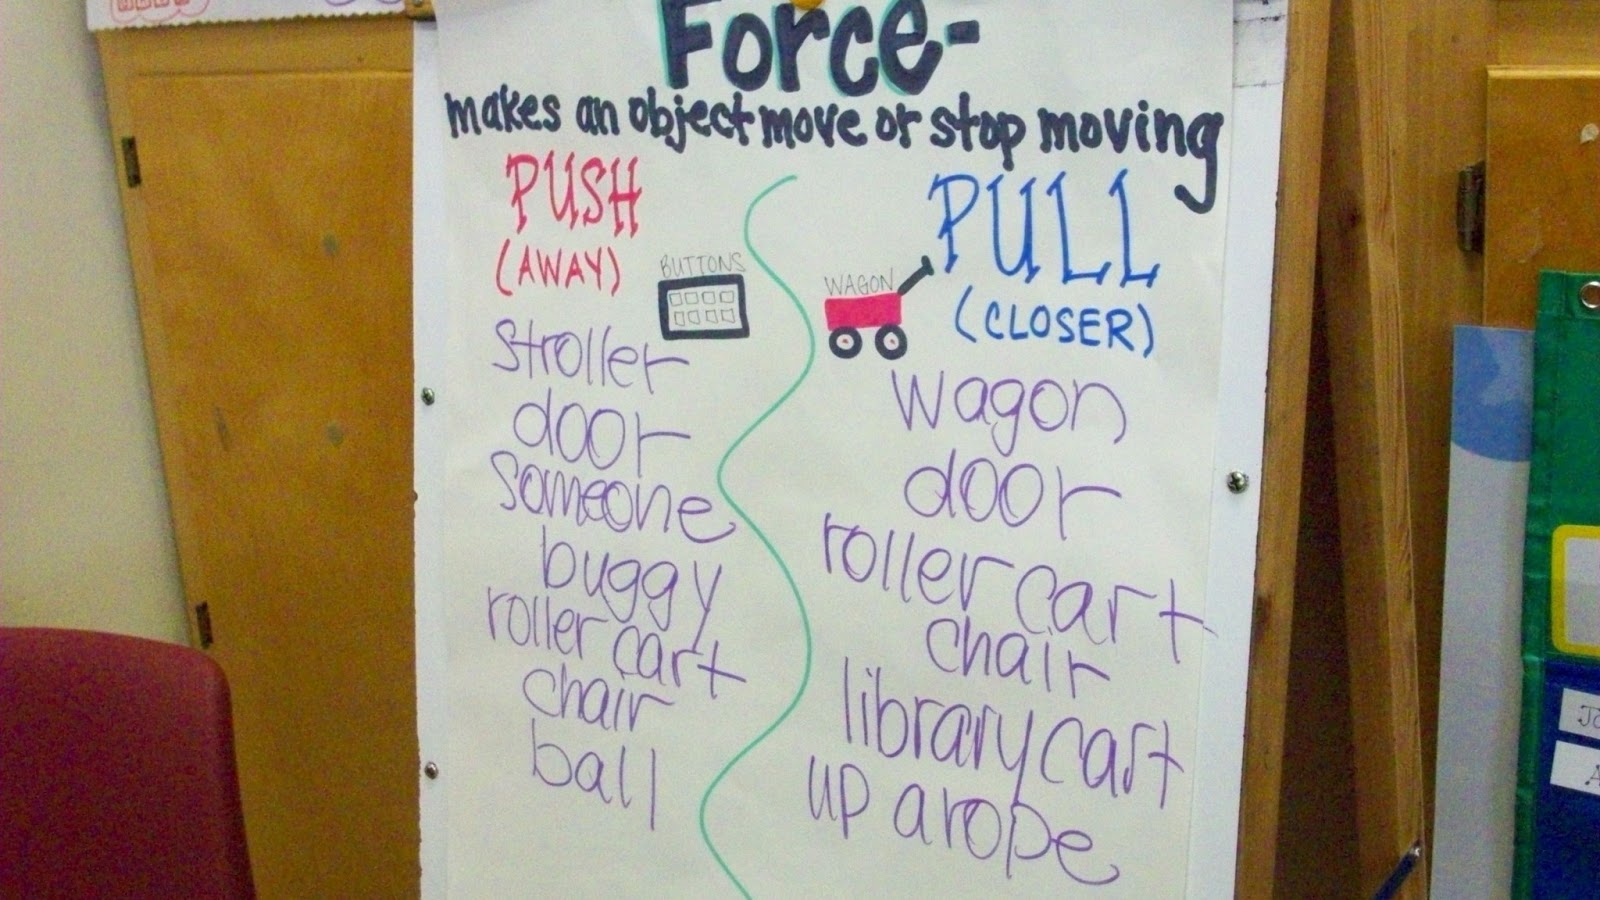 Force-
makes an object move or stop moving
PUSH
(AWAY)
BUTTONS
stroller
door
someone
buggy
roller cart
chair
ball
WAGON
PULL
(CLOSER)
wagon
door
roller cart
chair
library cart
up a rope